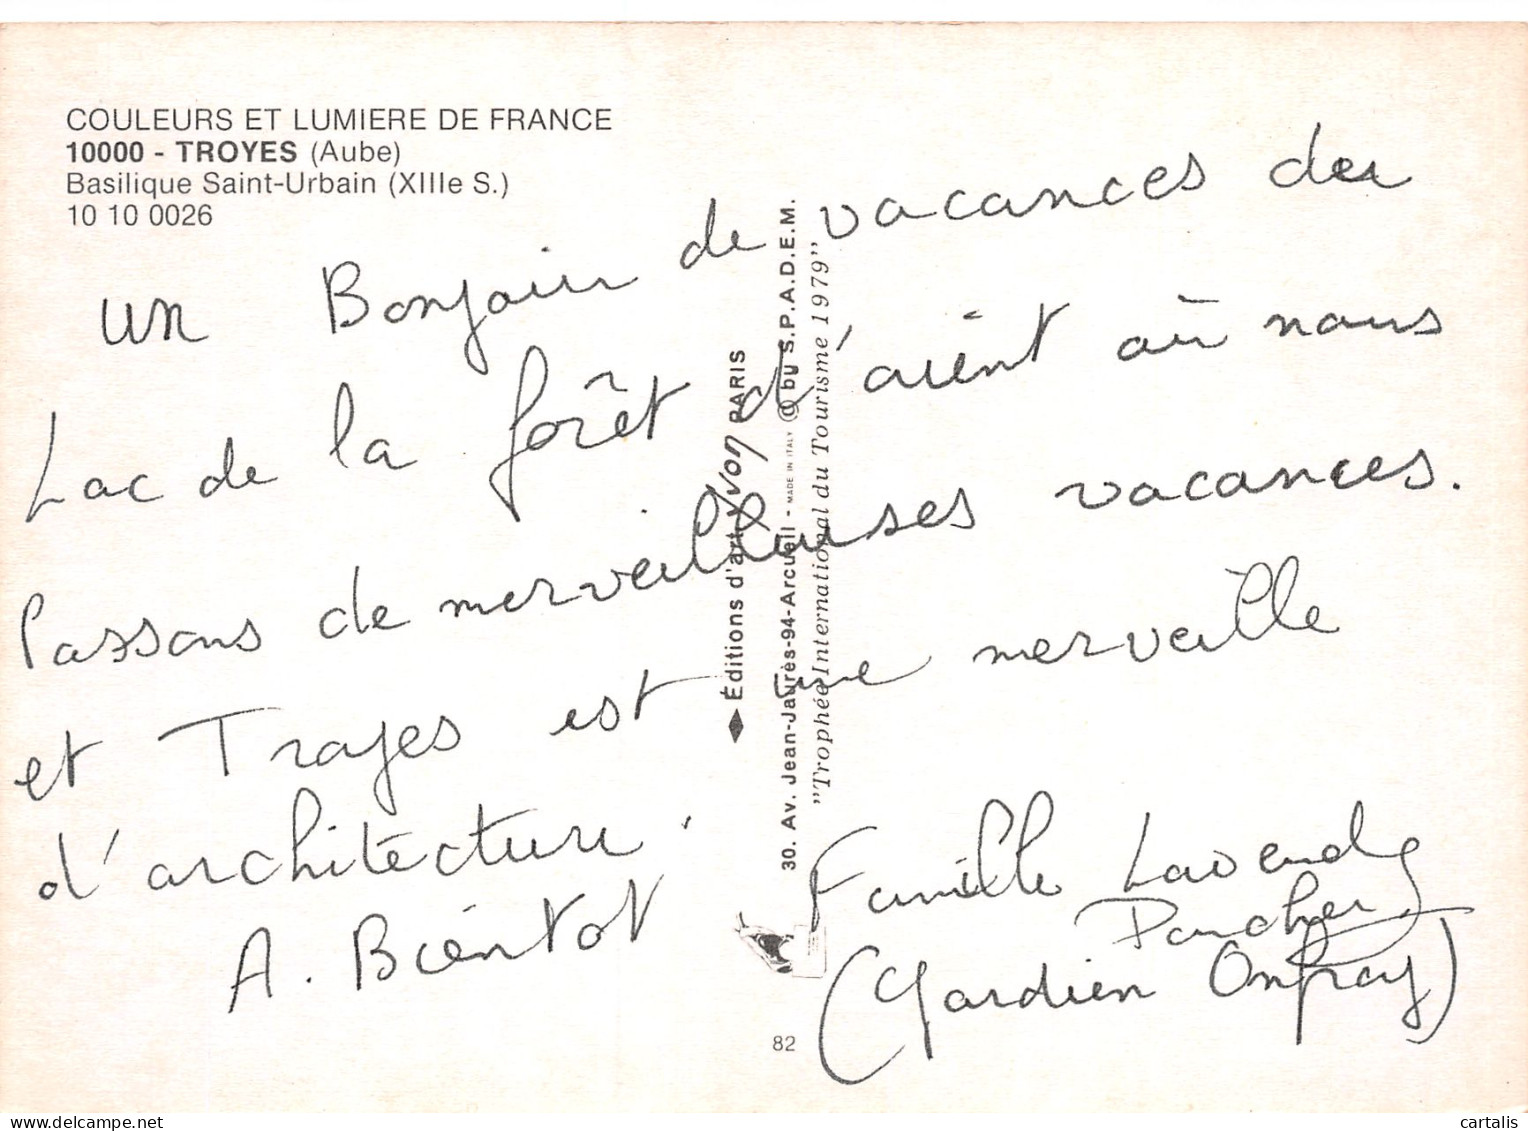 COULEURS ET LUMIERE DE FRANCE
10000 - TROYES (Aube)
Basilique Saint-Urbain (XIIIe S.)
10 10 0026
un Bonjour de vacances du
Lac de la forêt d'orient où nous
Passons de merveilleuses vacances.
et Troyes est une merveille
d'architecture.
A. Bientot
Famille Lavendy
(Gardien Onfray)
Éditions d'art Yvon PARIS
30. Av. Jean-Jaurès-94-Arcueil - MADE IN ITALY © by S.P.A.D.E.M.
"Trophée International du Tourisme 1979"
82
cartalis